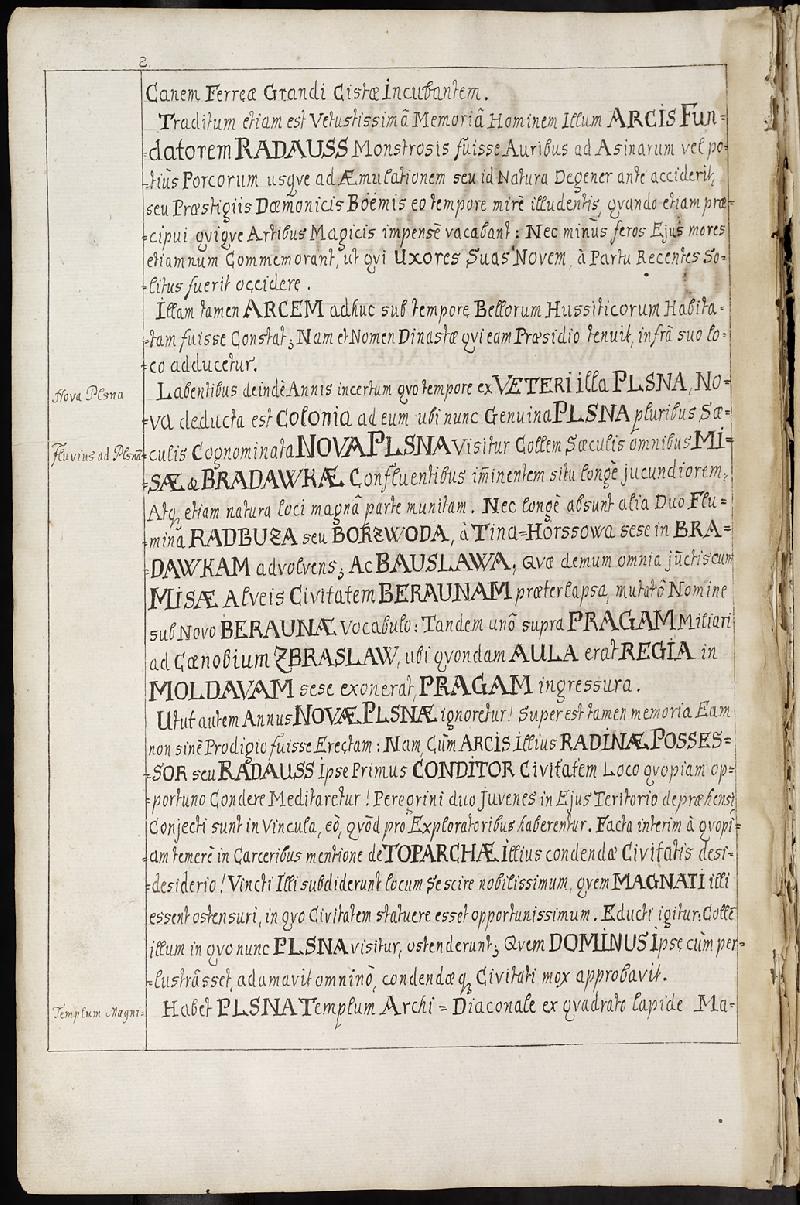 2.
Canem Ferreæ Grandi Cistæ Incubantem.
Traditum etiam est Vetustissimâ Memoriâ Hominem Illum ARCIS Fun=
datorem RADAUSS Monstrosis fuisse Auribus ad Asinarum vel po=
=tiùs Porcorum usqve ad Æmulationem seu id Natura Degener ante acciderit,
seu Præstigiis Dæmonicis Boëmis eo tempore mirè illudentis, qvando etiam præ=
=cipui qviqve Artibus Magicis impensè vacabant: Nec minus feros Ejus mores
etiamnum Commemorant, ut qvi Uxores Suas Novem, à Partu Recentes So=
=litus fuerit occidere.
Illam tamen ARCEM adhuc sub tempore Bellorum Hussiticorum Habita=
=tam fuisse Constat; Nam et Nomen Dinastæ qvi eam Præsidio tenuit, infrà suo lo=
=co adducetur.
Nova Plsna
Labentibus deindè Annis incertum qvo tempore ex VETERI illa PLSNA, No=
=va deducta est Colonia ad eum ubi nunc Genuina PLSNA pluribus Sæ=
Fluvius ad Plsnā
=culis Cognominata NOVA PLSNA Visitur Collem Sæculis omnibus MI=
=SÆ & BRADAWKÆ Confluentibus im̄inentem situ longè jucundiorem,
Atq; etiam natura loci magnâ parte munitam. Nec longè absunt alia Duo Flu=
=mina RADBUZA seu BORZWODA, à Tina=Hörssowa sese in BRA=
=DAWKAM advolvens; Ac BAUSLAWA, Qvæ demum omnia jūctis cum
MISÆ Alveis Civitatem BERAUNAM præterlapsa, mutatô Nomine
sub Novo BERAUNÆ Vocabulo: Tandem unô supra PRAGAM Miliari
ad Cœnobium ZBRASLAW, ubi qvondam AULA erat REGIA in
MOLDAVAM sese exonerat, PRAGAM ingressura.
Utut autem Annus NOVÆ PLSNÆ ignoretur! Superest tamen memoria Eam
non sinè Prodigio fuisse Erectam: Nam Cùm ARCIS Illius RADINÆ POSSES=
=SOR seu RADAUSS Ipse Primus CONDITOR Civitatem Loco qvopiam op=
=portuno Condere Meditaretur! Peregrini duo Juvenes in Ejus Teritorio depræhensi,
Conjecti sunt in Vincula, eô, qvòd pro Exploratoribus haberentur. Facta interim à qvopi=
=am temerè in Carceribus mentione de TOPARCHÆ illius condendæ Civitatis desi=
=desiderio! Vincti Illi subdiderunt locum se scire nobilissimum, qvem MAGNATI illi
essent ostensuri, in qvo Civitatem statuere esset opportunissimum. Educti igitur, Collē
illum in qvo nunc PLSNA visitur, ostenderunt; Qvem DOMINUS Ipse cùm per=
=lustrâsset, adamavit omninò, condendæq; Civitati mox approbavit.
Templum Magnū=
Habet PLSNA Templum Archi=Diaconale ex qvadrato lapide Ma=